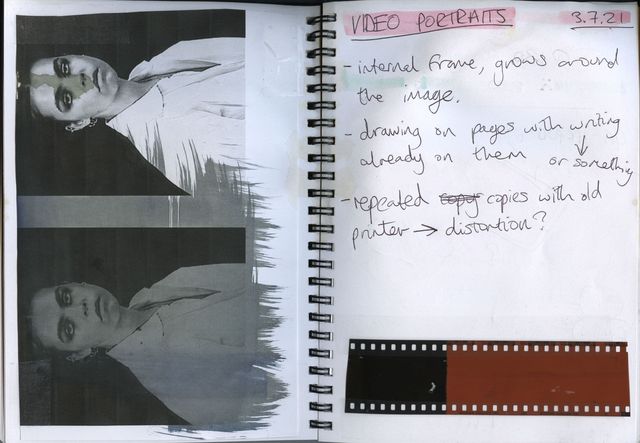 VIDEO PORTRAITS 3.7.21
- internal frame, grows around
the image.
- drawing on pages with writing
already on them or something
- repeated copy copies with old
printer → distortion?